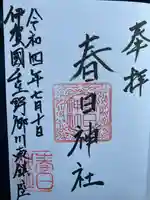 奉拝
春日神社
令和四年七月十日
伊賀國
川東鎮座